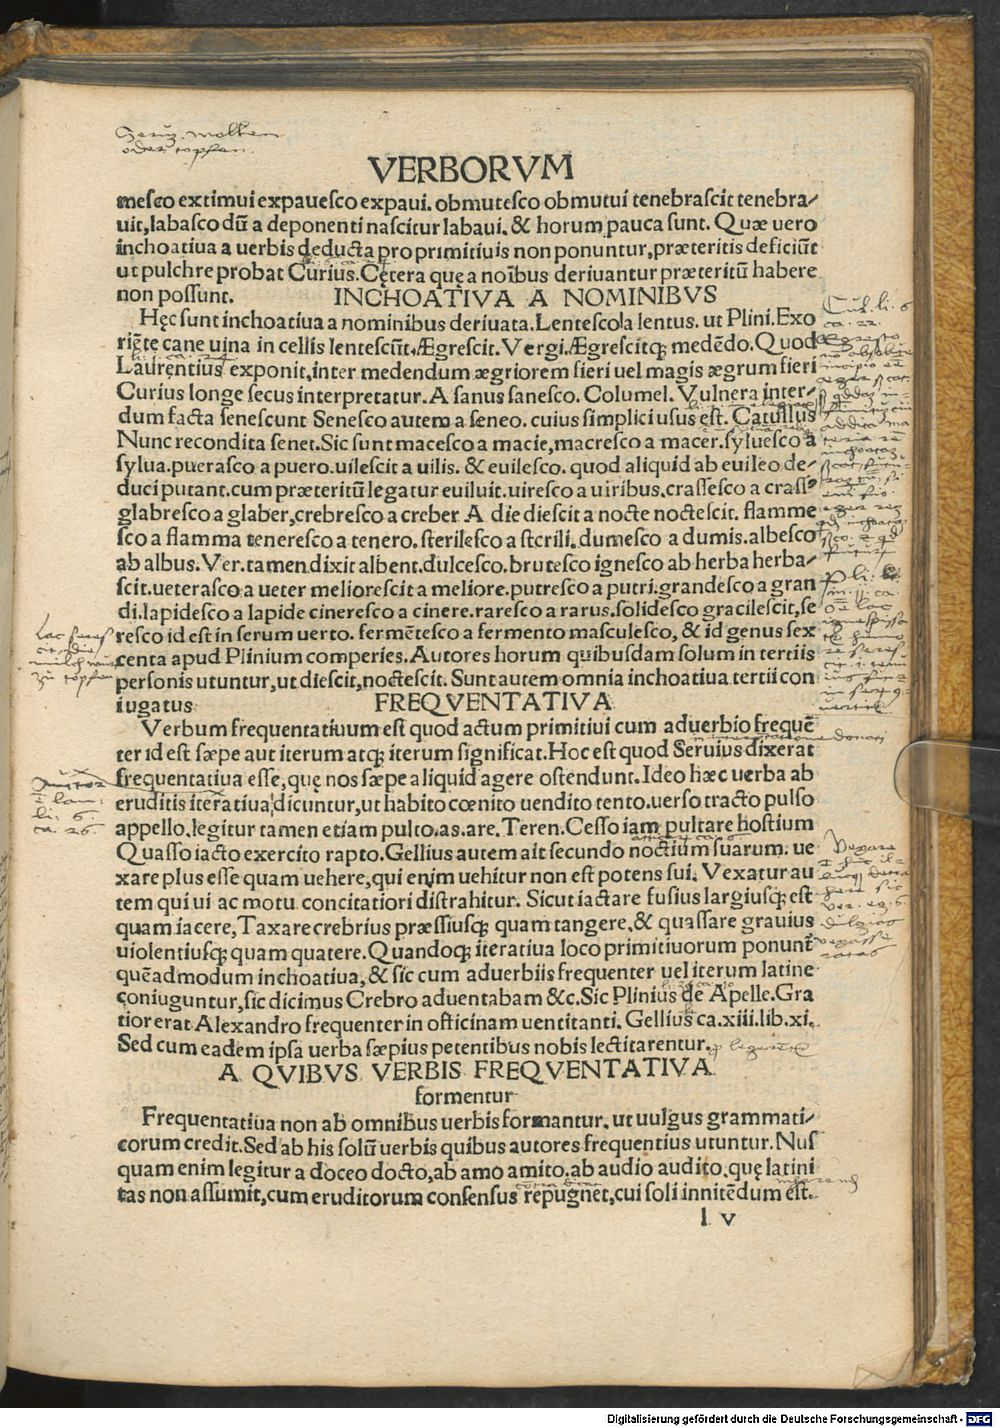 oder topfen.
VERBORVM
mesco extimui expauesco expaui. obmutesco obmutui tenebrascit tenebra/
uit, labasco dū a deponenti nascitur labaui. & horum pauca sunt. Quæ uero
inchoatiua a uerbis deducta pro primitiuis non ponuntur, præteritis deficiūt
ut pulchre probat Curius. Cętera quę a noībus deriuantur præteritū habere
non possunt. INCHOATIVA A NOMINIBVS
Hęc sunt inchoatiua a nominibus deriuata. Lentesco la lentus. ut Plini. Exo
riēte cane uina in cellis lentescūt. Ægrescit. Vergi. Ægrescitqꝫ medēdo. Quod
Laurentius exponit, inter medendum ægriorem fieri uel magis ægrum fieri
Curius longe secus interpretatur. A sanus sanesco. Columel. Vulnera inter-
dum facta senescunt Senesco autem a seneo. cuius simplici usus est. Catullus
Nunc recondita senet. Sic sunt macesco a macie, macresco a macer. syluesco a
sylua. puerasco a puero. uilescit a uilis. & euilesco. quod aliquid ab euileo de-
duci putant. cum præteritū legatur euiluit. uiresco a uiribus. crassesco a crassꝰ
glabresco a glaber, crebresco a creber A die diescit a nocte noctescit. flamme
sco a flamma teneresco a tenero. sterilesco a sterili. dumesco a dumis. albesco
ab albus. Ver. tamen dixit albent. dulcesco. brutesco ignesco ab herba herba-
scit. ueterasco a ueter meliorescit a meliore. putresco a putri. grandesco a gran
di. lapidesco a lapide cineresco a cinere. raresco a rarus. solidesco gracilescit, se
resco id est in serum uerto. fermētesco a fermento masculesco, & id genus sex
centa apud Plinium comperies. Autores horum quibusdam solum in tertiis
personis utuntur, ut diescit, noctescit. Sunt autem omnia inchoatiua tertii con
iugatus FREQVENTATIVA
Verbum frequentatiuum est quod actum primitiui cum aduerbio frequē
ter id est sæpe aut iterum atqꝫ iterum significat. Hoc est quod Seruius dixerat
frequentatiua esse, quę nos sæpe aliquid agere ostendunt. Ideo hæc uerba ab
eruditis iteratiua dicuntur, ut habito cœnito uendito tento. uerso tracto pulso
appello. legitur tamen etiam pulto. as. are. Teren. Cesso iam pultare hostium
Quasso iacto exercito rapto. Gellius autem ait secundo noctium suarum. ue
xare plus esse quam uehere, qui enim uehitur non est potens sui. Vexatur au
tem qui ui ac motu concitatiori distrahitur. Sicut iactare fusius largiusqꝫ est
quam iacere, Taxare crebrius præssiusqꝫ quam tangere, & quassare grauius
uiolentiusqꝫ quam quatere. Quandoqꝫ iteratiua loco primitiuorum ponunt᷑
quēadmodum inchoatiua, & sic cum aduerbiis frequenter uel iterum latine
coniuguntur, sic dicimus Crebro aduentabam &c. Sic Plinius de Apelle. Gra
tior erat Alexandro frequenter in officinam uentitanti. Gellius ca. xiii. lib. xi.
Sed cum eadem ipsa uerba sæpius petentibus nobis lectitarentur.
A QVIBVS VERBIS FREQVENTATIVA
formentur
Frequentatiua non ab omnibus uerbis formantur. ut uulgus grammati/
corum credit. Sed ab his solū uerbis quibus autores frequentius utuntur. Nus
quam enim legitur a doceo docto, ab amo amito. ab audio audito. quę latini
tas non assumit, cum eruditorum consensus repugnet, cui soli innitēdum est.
l v
Digitalisierung gefördert durch die Deutsche Forschungsgemeinschaft - DFG